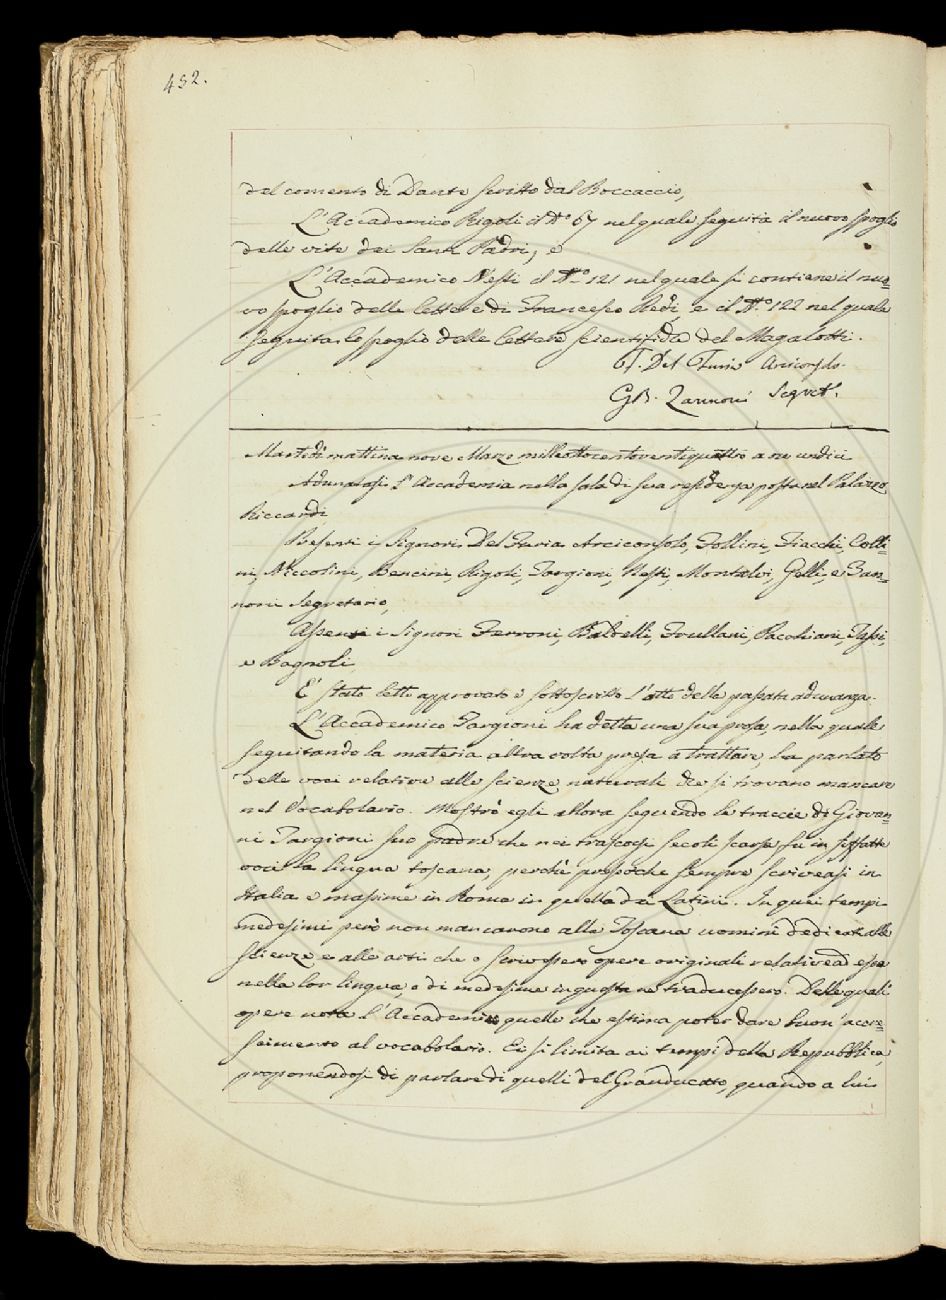 432.
del comento di Dante scritto dal Boccaccio,
L'Accademico Rigoli il N.° 67 nel quale seguita il nuovo spoglio
delle vite dei Santi Padri, e
L'Accademico Nesti il N.° 121 nel quale si contiene il nuo=
vo spoglio delle lettere di Francesco Redi, e il N.° 122 nel quale
seguita lo spoglio delle lettere scientifiche del Magalotti.
F. Del Furia Arciconsolo.
G.B. Zannoni Segret.°
Martedì mattina nove Marzo milleottocentoventiquattro a ore undici
Adunatasi l'Accademia nella sala di sua residenza posta nel Palazzo
Riccardi
Presenti i Signori Del Furia Arciconsolo, Follini, Fiacchi, Colli=
ni, Niccolini, Bencini, Rigoli, Targioni, Nesti, Montalvi, Gelli, e Zan=
noni Segretario,
Assenti i Signori Ferroni, Baldelli, Frullani, Pacchiani, Tassi,
e Bagnoli
E' stato letto approvato e sottoscritto l'atto della passata adunanza.
L'Accademico Targioni ha detta una sua prosa, nella quale
seguitando la materia altra volta presa a trattare, ha parlato
delle voci relative alle scienze naturali che si trovano mancare
nel Vocabolario. Mostrò egli allora seguendo le traccie di Giovan=
ni Targioni suo padre che nei trascorsi secoli scarsa fu in siffatte
voci la lingua toscana, perchè pressochè sempre scriveasi in
Italia e massime in Roma in quella dei Latini. In quei tempi
medesimi però non mancarono alla Toscana uomini dediti alle
scienze e alle arti che o scrivessero opere originali relative ad esse
nella lor lingua, o di medesime in questa ne traducessero. Delle quali
opere nota l'Accademico quelle che estima poter dare buon'accre=
scimento al vocabolario. Ei si limita ai tempi della Repubblica,
proponendosi di parlare di quelli del Granducato, quando a lui